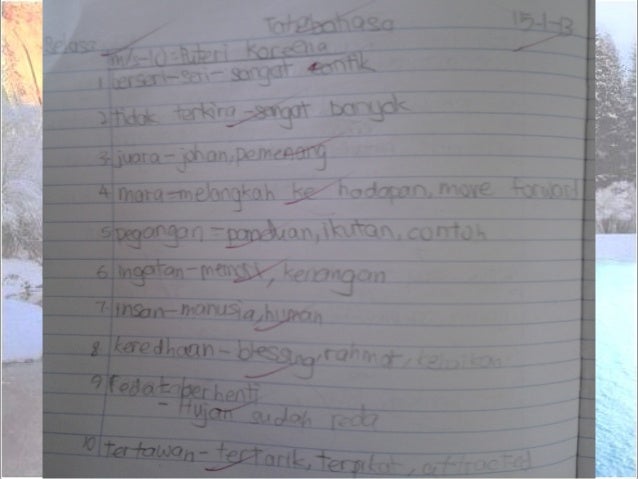 Tatabahasa 15-1-13
Selasa
m/s-10 = Puteri Koreena
1 berseri-seri - sangat cantik
2 tidak terkira - sangat banyak
3 juara - johan, pemenang
4 mara - melangkah ke hadapan, move forward
5 pegangan = panduan, ikutan, contoh
6 ingatan - memori, kenangan
7 insan - manusia, human
8 keredhaan - blessing, rahmat, kebaikan
9 reda - berhenti
- Hujan sudah reda
10 tertawan - tertarik, terpikat, attracted